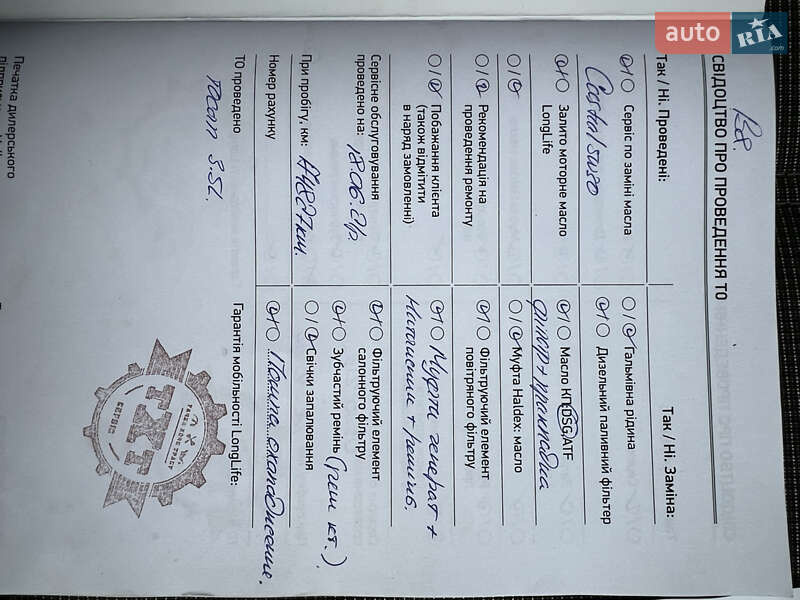 auto RIA .com
СВІДОЦТВО ПРО ПРОВЕДЕННЯ ТО
Так / Ні. Проведені:
Сервіс по заміні масла
Castrol 5w30
Залито моторне масло
LongLife
Рекомендація на
проведення ремонту
Побажання клієнта
(також відмітити
в наряд замовленні)
Сервісне обслуговування
проведено на: 18.06.21р.
При пробігу, км:
Номер рахунку
ТО проведено
3.5L.
Печатка дилерського
Так / Ні. Заміна:
Гальмівна рідина
Дизельний паливний фільтр
Масло КП,DSG,ATF
фильтр + прокладка
Муфта Haldex: масло
Фільтруючий елемент
повітряного фільтру
Муфта генерат +
+ ремінь.
Фільтруючий елемент
салонного фільтру
Зубчастий ремінь (Грм кт.)
Свічки запалювання
Помпа
Гарантія мобільності LongLife:
ТХТ
СЕРВІС